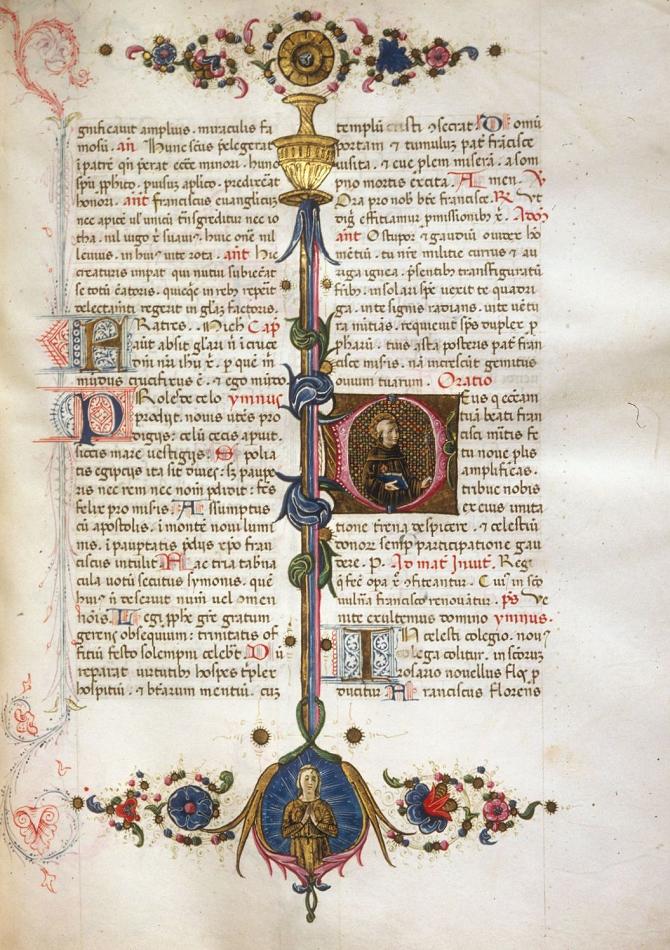 gnificauit amplius. miraculis fa
mosū. añ Hunc scūs p̄elegerat
i patrē qñ p̄erat ecc̄e minori. hunc
sp̄u pphico. apl̄ico. predixerāt
honori. añt franciscus euangelicuȝ
nec apicē ul unicū trāsgreditur nec io
tha. nil iugo suauiꝰ. huic onē nil
leuius. in huiꝰ uite rota. añt hic
creaturis impat qui nutui subiecat
se totū c̄atoris. quicq̄ȝ in rebꝰ rep̄erit
delectam̄ti regerit in gl̄aȝ factoris.
FRatres. Mich Cap̄
aūt absit gl̄ari n̄ i cruce
dn̄i nr̄i ihū x̄. p quē m̄
mūdus crucifixus ē. ⁊ ego mūdo
PRoles de celo ymnuȝ
prodijt. nouis utēs pro
digijs: celū cecis apuit.
siccis mare uestigijs. Spolia
tis egiptijs ita sit diues: sȝ paupe
ris nec rem nec nom̄ p̄didit:
felix pro misis. Assumptus
cū apostolis. i montē noui lumi
nis. i pauptatis p̄dijs xp̄o fran
ciscus intulit. Fac tria tabna
cula uotū secutus symonis. quē
huiꝰ n̄ deseruit num̄ uel omen
hōis. Legi. pph̄e grē gratum
gerens obsequium: trinitatis of
fitiū festo solempni celebr̄. Dū
reparat uirtutibꝰ hospes t̄plex
hospitiū. ⁊ bt̄arum mentiū. cuȝ
templū cristi ꝯsecrat. Domū
portam ⁊ tumuluȝ pat̄ frācisce
uisita. ⁊ eue plem miserā. a som
pno mortis excita. Amen. V
Ora pro nob̄ bt̄e francisce. R Vt
dig̃ efficiamur p̄missionibꝰ x̄. Ad
añt O stupor ⁊ gaudiū o iudex ho
mētiū. tu nr̄e militie currus ⁊ au
riga ignea. p̄sentibꝰ transfiguratū
frībꝰ. in solari sp̄e uexit te quadri
ga. in te signis radians. in te uētu
ra nūtias. requieuit sp̄s duplex p
phariū. tuis asta posteris pat̄ fran
cisce misis. nā increscūt gemitus
ouium tuarum. Oratio
DEus q̄ ecc̄am
tuā beati fran
cisci mītis fe
tu noue plis
amplificas.
tribue nobis
ex eius imita
tione t̄rena despicere. ⁊ celestiū
donoȝ semp̄ participatione gau
dere. P. Ad mat̄ Inuit. Regi
q̄ fec̄ opa x̄ ꝯfiteantur. Cuiꝰ in scō
mūdo francisco renouātur. p̄s Ve
nite exultemus domino ymnus.
IN celesti colegio. nouꝰ
colega colitur. in scōruȝ
rosario nouellus flos p
ducitur Franciscus florens